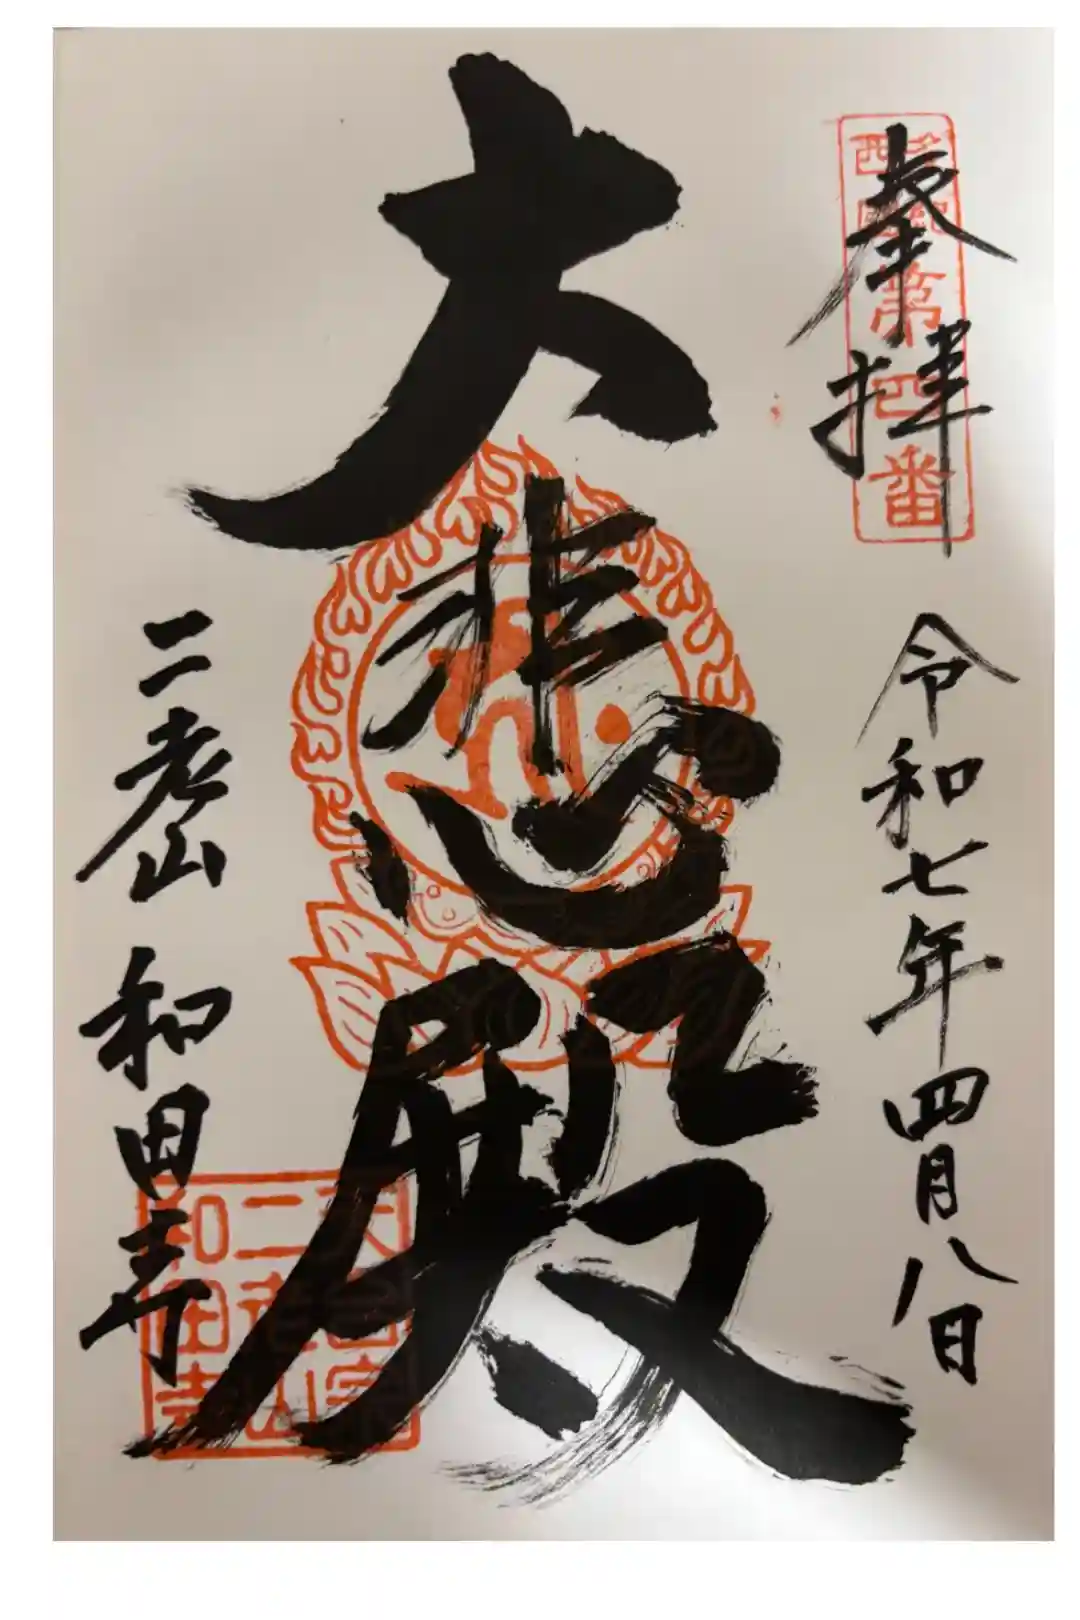 奉拝
西國
第四番
令和七年四月八日
大悲殿
二老山 和田寺
天台宗
二老山
和田寺